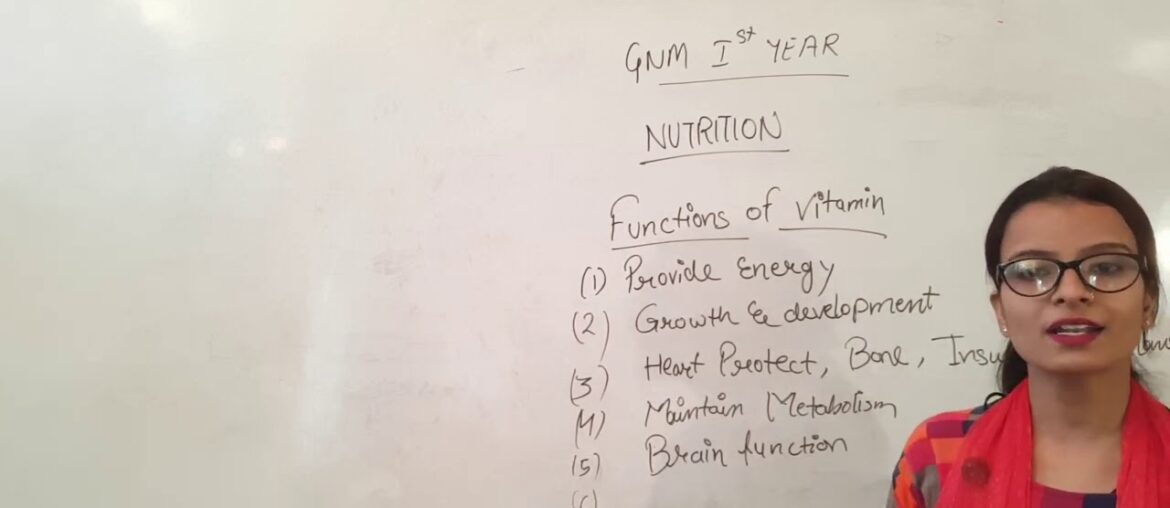 GNM Ist YEAR
NUTRITION
Functions of vitamin
(1) Provide Energy
(2) Growth & development
(3) Heart Protect, Bone,
(4) Maintain Metabolism
(5) Brain function